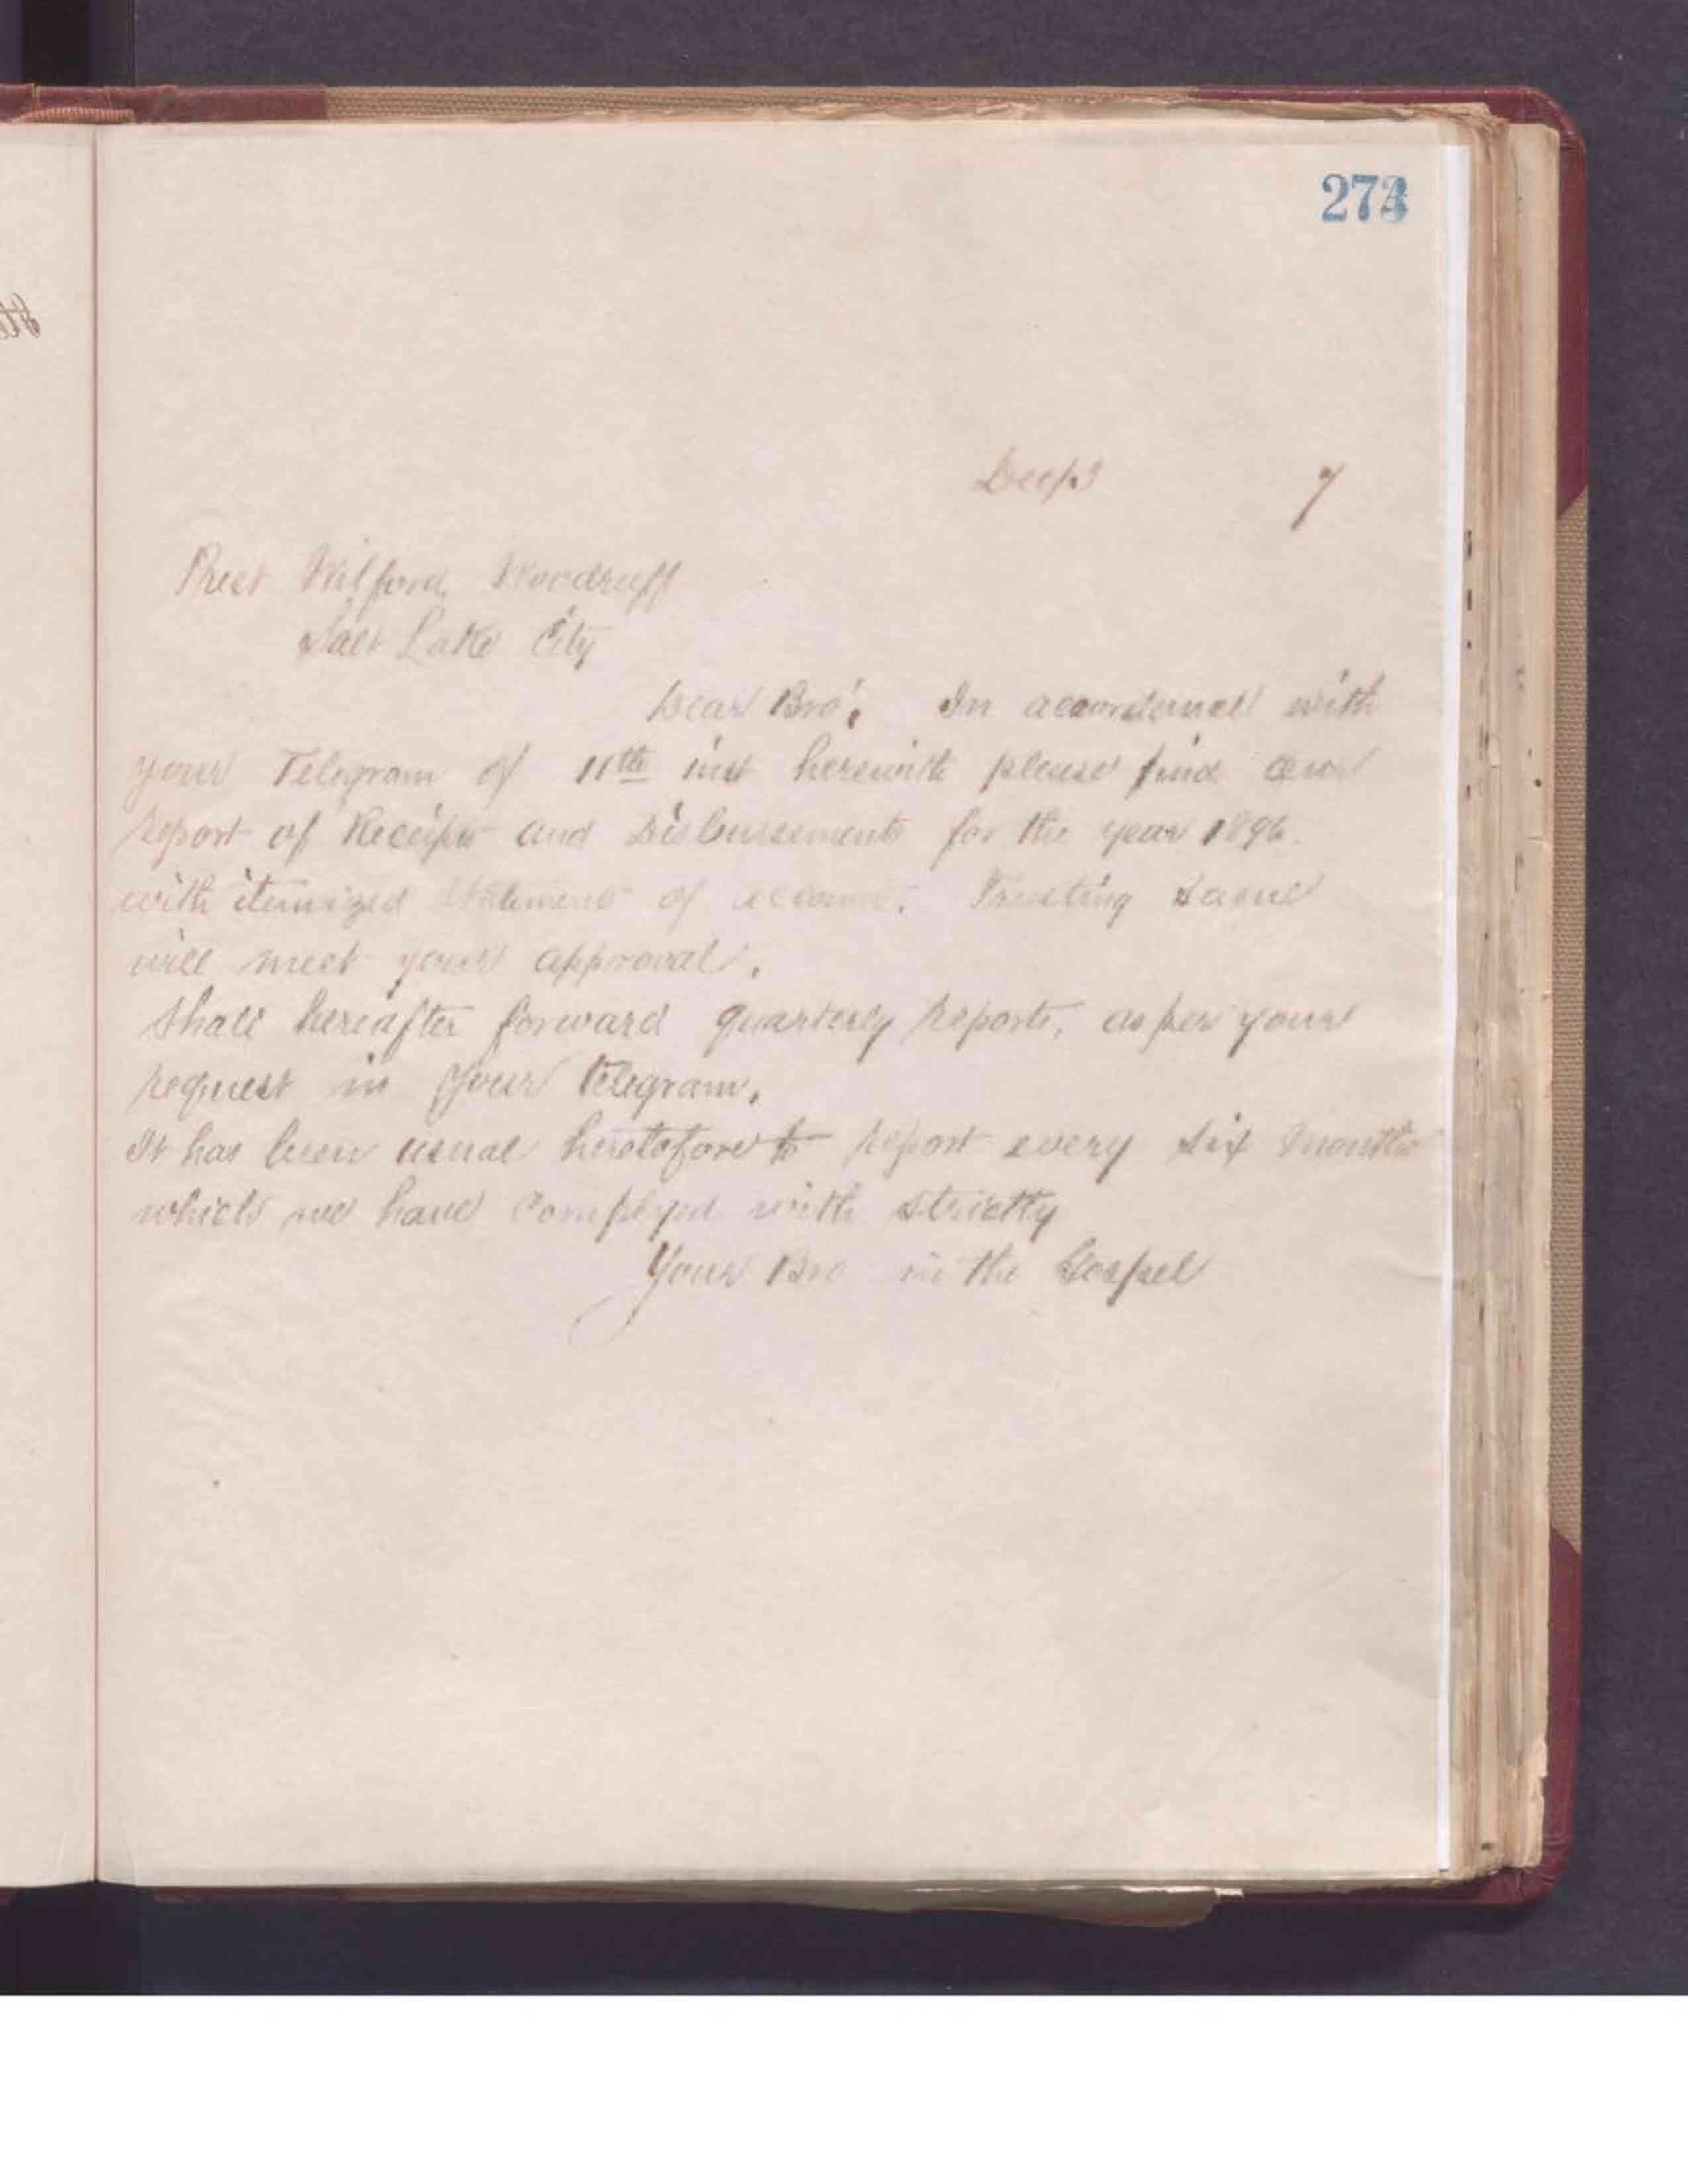 273
Sept 7
Prest Wilford Woodruff
Salt Lake City
Dear Bro: In accordance with
your Telegram of 11th inst herewith please find our
report of Receipts and Disbursements for the year 1896.
with itemized Statement of account. Trusting same
will meet your approval.
Shall hereafter forward quarterly reports, as per your
request in your telegram.
It has been usual heretofore to report every six months
which we have complyed with strictly
Your Bro in the Gospel